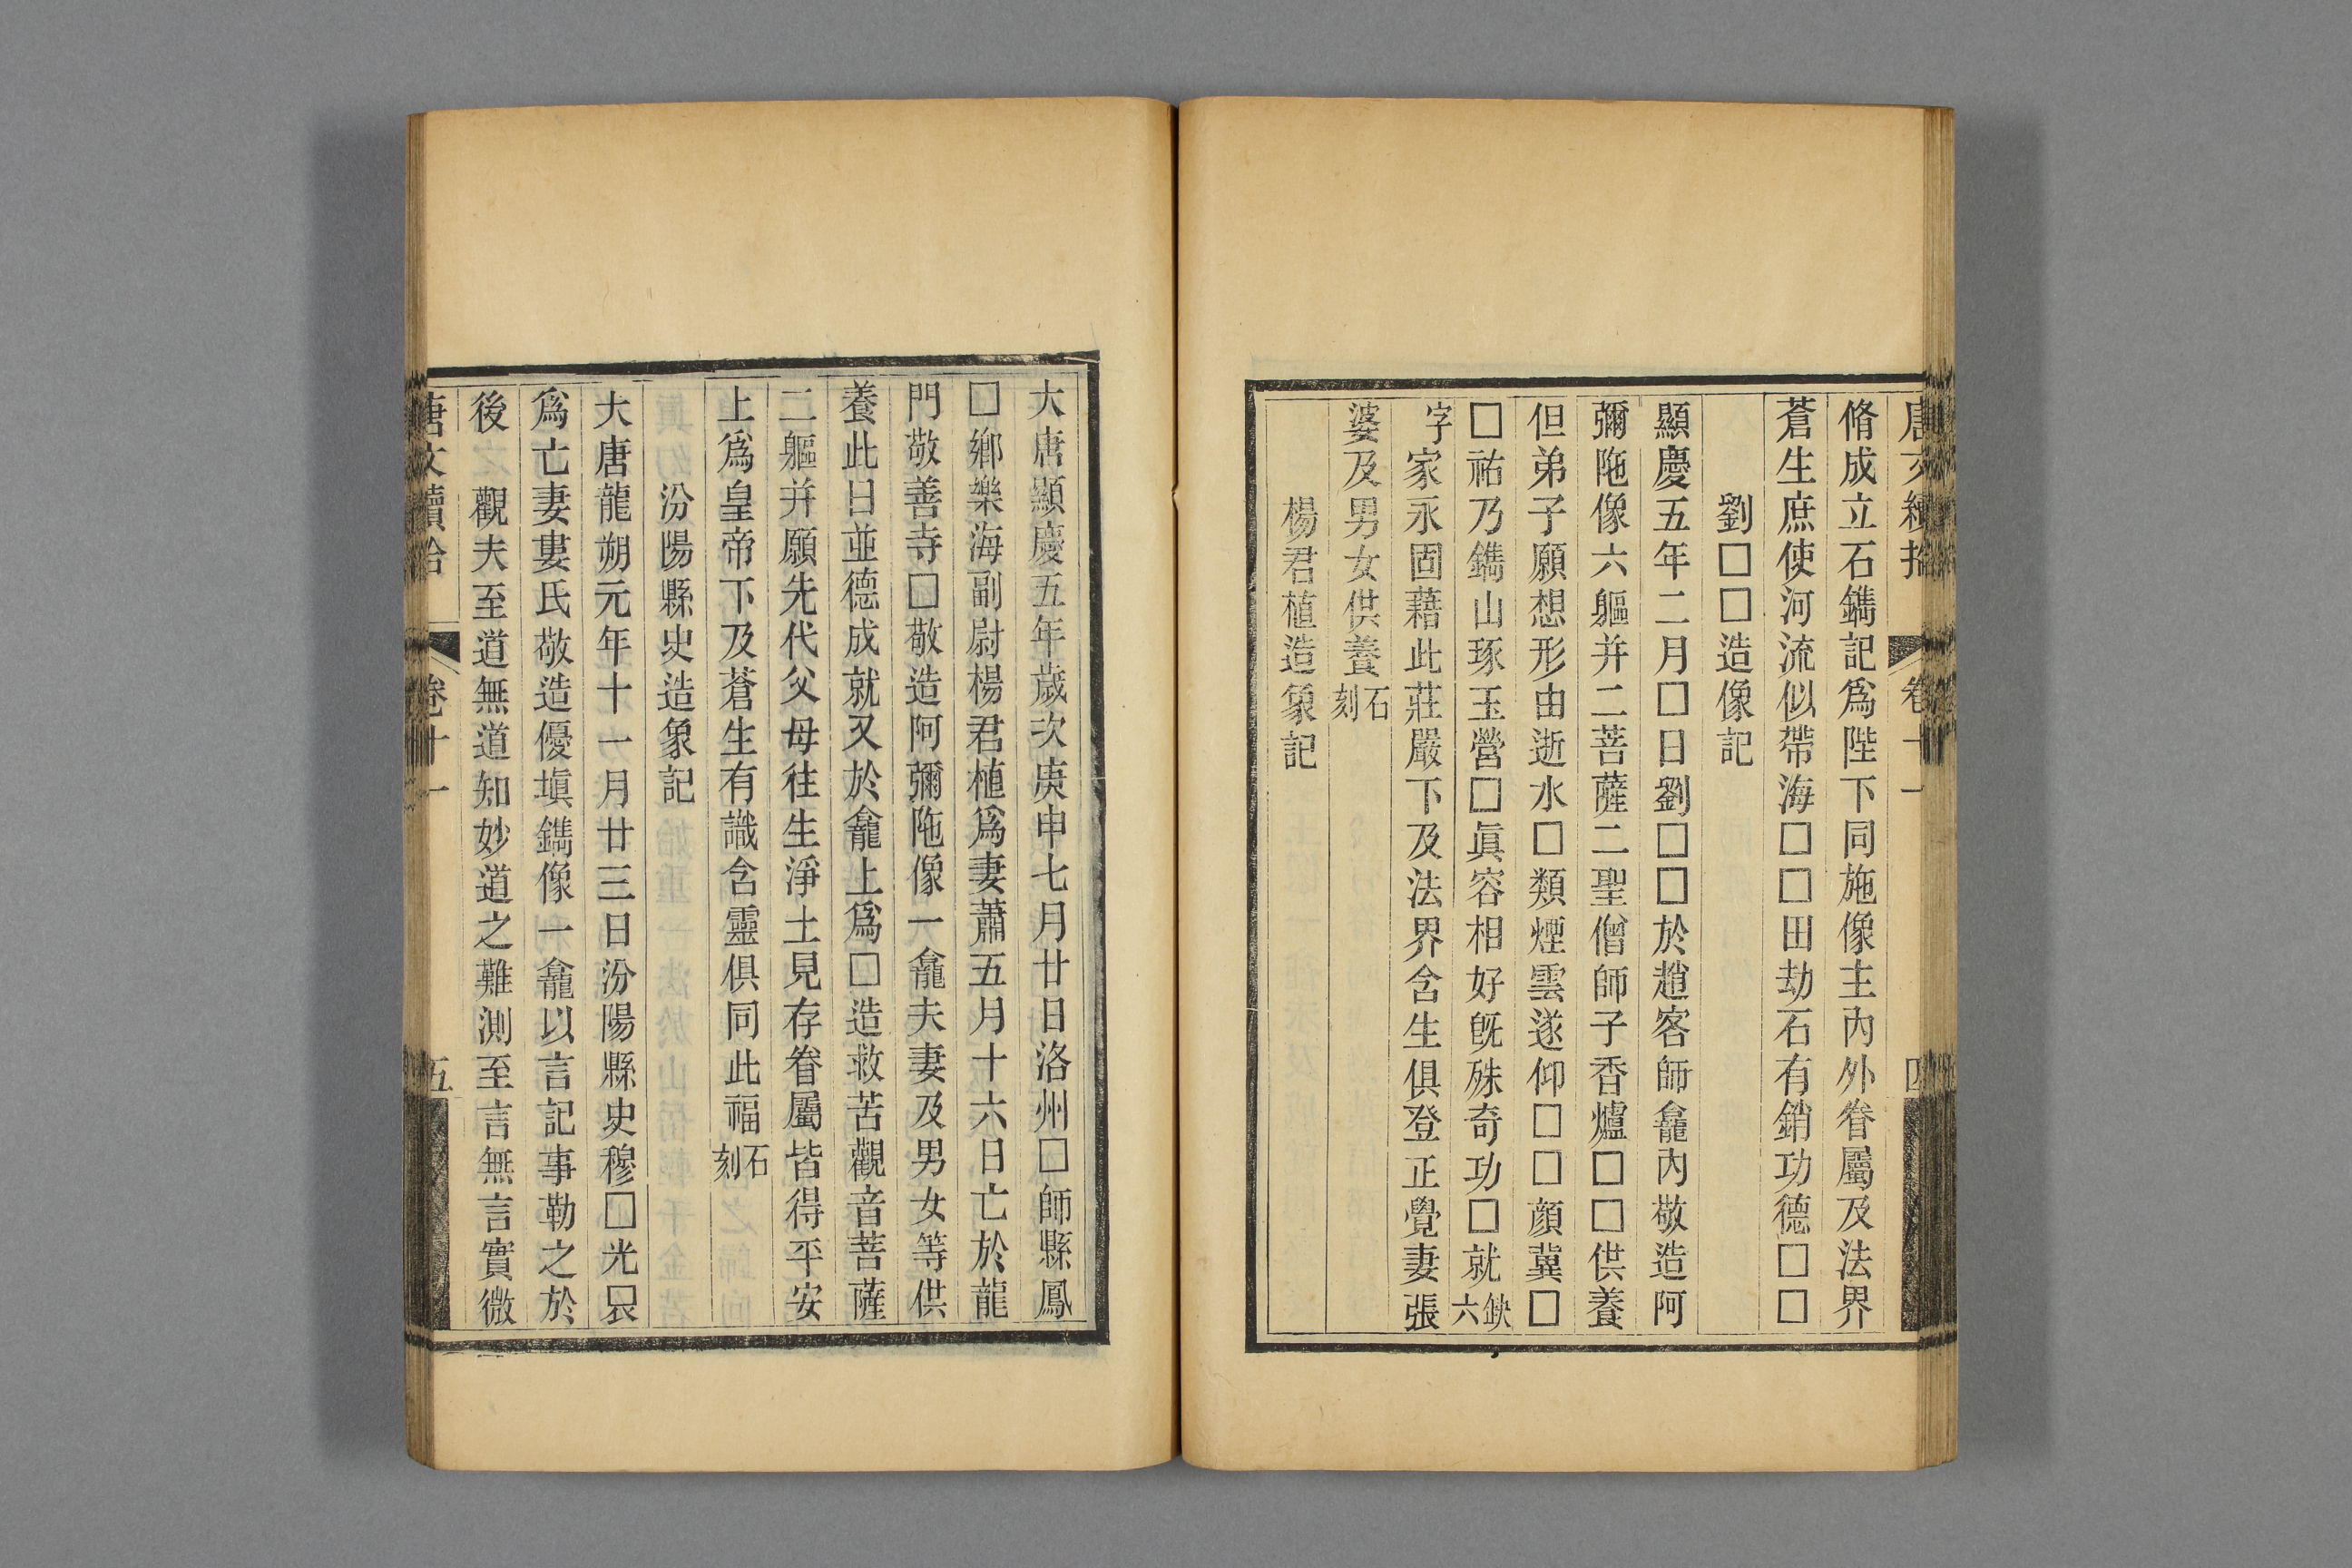 脩成立石鐫記爲陛下同施像主內外眷屬及法界
蒼生庶使河流似帶海□□田劫石有銷功德□□
劉□□造像記
顯慶五年二月□日劉□□於趙客師龕內敬造阿
彌陁像六軀并二菩薩二聖僧師子香爐□□供養
但弟子願想形由逝水□類煙雲遂仰□□顔冀□
□祐乃鐫山琢玉營□眞容相好旣殊奇功□就缺六
字家永固藉此莊嚴下及法界含生俱登正覺妻張
婆及男女供養石刻
楊君植造象記
大唐顯慶五年歲次庚申七月廿日洛州□師縣鳳
□鄉樂海副尉楊君植爲妻蕭五月十六日亡於龍
門敬善寺□敬造阿彌陁像一龕夫妻及男女等供
養此日並德成就又於龕上爲□造救苦觀音菩薩
二軀并願先代父母往生淨土見存眷屬皆得平安
上爲皇帝下及蒼生有識含靈俱同此福石刻
汾陽縣史造象記
大唐龍朔元年十一月廿三日汾陽縣史穆□光
爲亡妻婁氏敬造優塡鐫像一龕以言記事勒之於
後 觀夫至道無道知妙道之難測至言無言實微
唐文續拾 卷十一 五